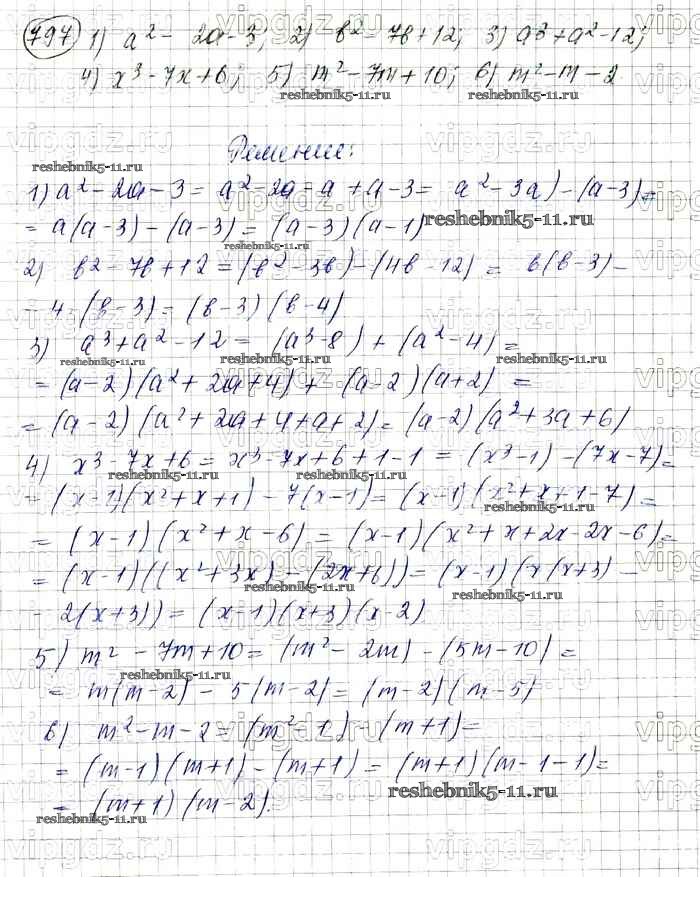 797 1) a² - 2a - 3; 2) b² - 7b + 12; 3) a³ + a² - 12;
4) x³ - 7x + 6; 5) m² - 7m + 10; 6) m² - m - 2.
reshebnik5-11.ru reshebnik5-11.ru
Решение:
reshebnik5-11.ru
1) a² - 2a - 3 = a² - 2a - a + a - 3 = a² - 3a) - (a - 3) =
= a(a - 3) - (a - 3) = (a - 3)(a - 1) reshebnik5-11.ru
reshebnik5-11.ru
2) b² - 7b + 12 = (b² - 3b) - (4b - 12) = b(b - 3) -
- 4 (b - 3) = (b - 3)(b - 4)
3) a³ + a² - 12 = (a³ - 8) + (a² - 4) =
reshebnik5-11.ru reshebnik5-11.ru
= (a - 2)(a² + 2a + 4) + (a - 2)(a + 2) =
= (a - 2)(a² + 2a + 4 + a + 2) = (a - 2)(a² + 3a + 6)
reshebnik5-11.ru
4) x³ - 7x + 6 = x³ - 7x + 6 + 1 - 1 = (x³ - 1) - (7x - 7) =
reshebnik5-11.ru
= (x - 1)(x² + x + 1) - 7(x - 1) = (x - 1)(x² + x + 1 - 7) =
reshebnik5-11.ru
= (x - 1)(x² + x - 6) = (x - 1)(x² + x + 2x - 2x - 6) =
= (x - 1)((x² + 3x) - (2x + 6)) = (x - 1)(x(x + 3)
reshebnik5-11.ru reshebnik5-11.ru
- 2(x + 3)) = (x - 1)(x + 3)(x - 2)
5) m² - 7m + 10 = (m² - 2m) - (5m - 10) =
reshebnik5-11.ru
= m(m - 2) - 5(m - 2) = (m - 2)(m - 5)
6) m² - m - 2 = (m² - 1) - (m + 1) =
= (m - 1)(m + 1) - (m + 1) = (m + 1)(m - 1 - 1) =
reshebnik5-11.ru
= (m + 1)(m - 2).
reshebnik5-11.ru